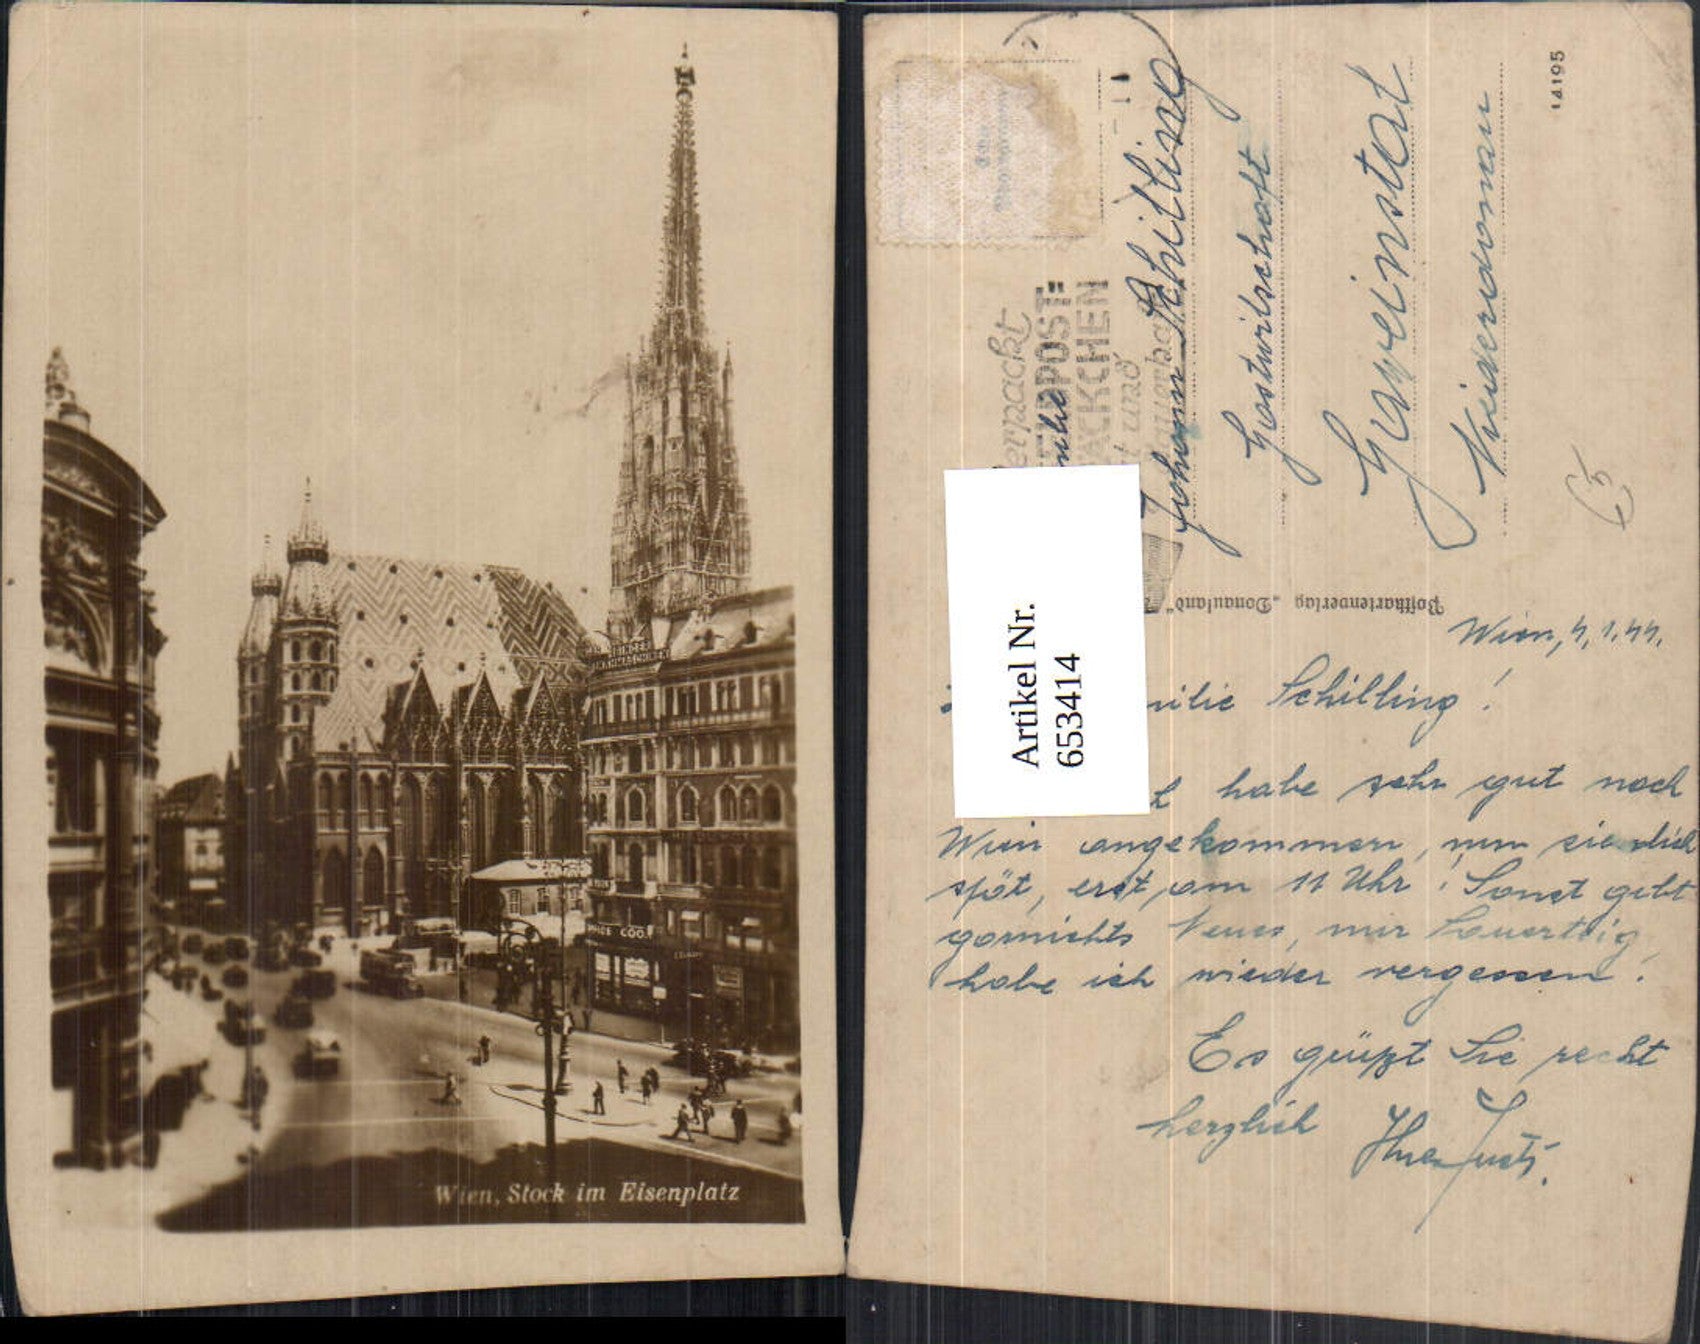 Wien, Stock im Eisenplatz
14195
erpackt
POST=
ÄCKCHEN
und
Johann Schilling
Gastwirtschaft
Niederdonau
Postkartenverlag „Donauland"
Artikel Nr.
653414
Wien, 4.1.44.
milie Schilling!
habe sehr gut nach
Wien angekommen, nun ziemlich
spät, erst um 11 Uhr! Sonst gibt
garnichts Neues, nur Sauerteig,
habe ich wieder vergessen.
Es grüßt Sie recht
herzlich Ihre Justi.